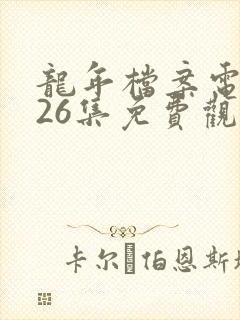 龍年檔案電
26集免費觀
卡尔伯恩斯坦